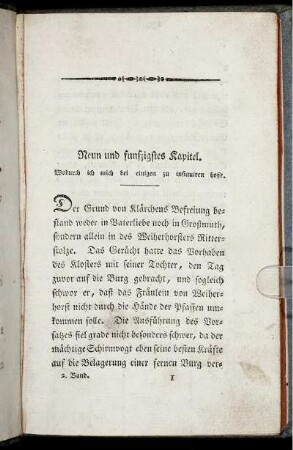 Neun und funfzigstes Kapitel.
Wodurch ich mich bei einigen zu insinuiren hoffe.
Der Grund von Klärchens Befreiung be-
stand weder in Vaterliebe noch in Großmuth,
sondern allein in des Weiherhorsters Ritter-
stolze. Das Gerücht hatte das Vorhaben
des Klosters mit seiner Tochter, den Tag
zuvor auf die Burg gebracht, und sogleich
schwor er, daß das Fräulein von Weiher-
horst nicht durch die Hände der Pfaffen um-
kommen solle. Die Ausführung des Vor-
satzes fiel grade nicht besonders schwer, da der
mächtige Schirmvogt eben seine besten Kräfte
auf die Belagerung einer fernen Burg ver-
2. Band. I